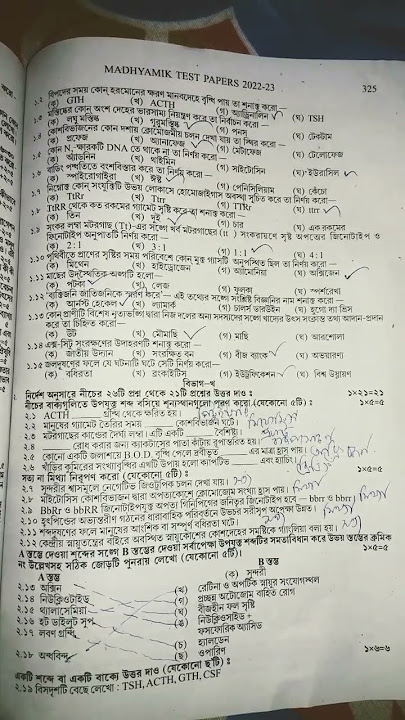 MADHYAMIK TEST PAPERS 2022-23
325
১.২ বিপদের সময় কোন্ হরমোনের ক্ষরণ মানবদেহে বৃদ্ধি পায় তা শনাক্ত করো—
(ক) GTH (খ) ACTH (গ) অ্যাড্রিনালিন (ঘ) TSH
১.৩ মস্তিষ্কের কোন্ অংশ দেহের ভারসাম্য নিয়ন্ত্রণ করে তা নির্বাচন করো—
(ক) লঘু মস্তিষ্ক (খ) গুরুমস্তিষ্ক (গ) পনস্
১.৪ কোশবিভাজনের কোন দশায় ক্রোমোজমীয় চলন দেখা যায় তা স্থির করো—
(ক) প্রফেজ (খ) অ্যানাফেজ (গ) মেটাফেজ (ঘ) টেলোফেজ
১.৫ কোন N₂-ক্ষারকটি DNA তে থাকে না তা নির্ণয় করো—
(ক) অ্যাডেনিন (খ) থাইমিন (গ) সাইটোসিন (ঘ) ইউরাসিল
১.৬ বাডিং পদ্ধতিতে বংশবিস্তার করে তা নির্ণয় করো—
(ক) স্পাইরোগাইরা (খ) ঈস্ট (গ) পেনিসিলিয়াম (ঘ) কেঁচো
১.৭ নিম্নোক্ত কোন্ সংযুক্তিটি উভয় লোকাসে হোমোজাইগাস অবস্থা সূচিত করে তা নির্ণয় করো—
(ক) TtRr (খ) Ttrr (গ) TTRr (ঘ) ttrr
১.৮ TtRR থেকে কত রকমের গ্যামেট সৃষ্টি করে তা শনাক্ত করো—
(ক) তিন (খ) দুই (গ) চার (ঘ) এক রকমের
১.৯ সংকর লম্বা মটরগাছ (Tt)-এর সঙ্গে খর্ব মটরগাছের (tt) সংকরায়ণে সৃষ্ট অপত্যের জিনোটাইপ ও
ফিনোটাইপ অনুপাতটি নির্ণয় করো—
(ক) 2 : 1 (খ) 3 : 1 (গ) 1 : 1 (ঘ) 4 : 1
১.১০ পৃথিবীতে প্রাণের সৃষ্টির সময় পরিবেশে কোন্ মুক্ত গ্যাসটি অনুপস্থিত ছিল তা নির্ণয় করো—
(ক) মিথেন (খ) হাইড্রোজেন (গ) অ্যামোনিয়া (ঘ) অক্সিজেন
১.১১ মাছের উদ্‌স্থৈতিক অঙ্গটি হলো—
(ক) পটকা (খ) লেজ (গ) ফুলকা (ঘ) স্পর্শরেখা
১.১২ 'ব্যক্তিজনি জাতিজনিকে স্মরণ করে'— এই তথ্যের সঙ্গে সংশ্লিষ্ট বিজ্ঞানীর নাম শনাক্ত করো—
(ক) আর্নস্ট হেকেল (খ) ল্যামার্ক (গ) চার্লস ডারউইন (ঘ) হুগো দ্য ভ্রিস
১.১৩ কোন্ প্রাণীটি বিশেষ নৃত্যভঙ্গি দ্বারা নিজ দলের অন্য সদস্যদের সঙ্গে খাদ্যের উৎস সংক্রান্ত তথ্য আদান-প্রদান
করে তা চিহ্নিত করো—
(ক) উট (খ) মৌমাছি (গ) মাছি (ঘ) আরশোলা
১.১৪ এক্স-সিটু সংরক্ষণের উদাহরণটি শনাক্ত করো—
(ক) জাতীয় উদ্যান (খ) সংরক্ষিত বন (গ) বীজ ব্যাংক (ঘ) অভয়ারণ্য
১.১৫ জলদূষণের ফলে যে ঘটনাটি ঘটে সেটি নির্ণয় করো—
(ক) বধিরতা (খ) ব্রংকাইটিস্ (গ) ইউট্রফিকেশন (ঘ) বিশ্ব উষ্ণায়ণ
বিভাগ—খ
নির্দেশ অনুসারে নীচের ২৬টি প্রশ্ন থেকে ২১টি প্রশ্নের উত্তর দাও : ১×২১=২১
নীচের বাক্যগুলিতে উপযুক্ত শব্দ বসিয়ে শূন্যস্থানগুলো পূরণ করো (যেকোনো ৫টি) : ১×৫=৫
২.১ ACTH গ্রন্থি থেকে ক্ষরিত হয়।
২.২ মানুষের গ্যামেট তৈরির সময় কোশবিভাজন ঘটে।
২.৩ মটরগাছের কাণ্ডের দৈর্ঘ্য লম্বা। এটি একটি বৈশিষ্ট্য।
২.৪ রোধ করার জন্য ক্যাকটাসের পাতা কাঁটায় রূপান্তরিত হয়।
২.৫ কোনো একটি জলাশয়ে B.O.D. বৃদ্ধি পেলে দ্রবীভূত এর মাত্রা হ্রাস পায়।
২.৬
সত্য না মিথ্যা নিরূপণ করো (যেকোনো ৫টি) : ১×৫=৫
২.৭ সুন্দরীর শ্বাসমূলে নেগেটিভ জিওট্রপিক চলন দেখা যায়।
২.৮ মাইটোসিস কোশবিভাজন দ্বারা অপত্যকোশে ক্রোমোজোম সংখ্যা হ্রাস পায়। মিথ্যা
২.৯ BbRr ও bbRR জিনোটাইপযুক্ত অপত্য গিনিপিগের জনিতৃর জিনোটাইপ হবে — bbrr ও bbrr। মিথ্যা
২.১০ হৃৎপিণ্ডের অভ্যন্তরীণ গঠনের ধারাবাহিক পরিবর্তনে উভচর সরীসৃপ অপেক্ষা উন্নত। মিথ্যা
২.১১ শব্দদূষণের ফলে মানুষের আংশিক বা সম্পূর্ণ বধিরতা ঘটে।
২.১২ কেন্দ্রীয় স্নায়ুতন্ত্রের বাইরে অবস্থিত স্নায়ুকোশের কোশদেহের সমষ্টিকে গ্যাংলিয়া বলা হয়।
A স্তম্ভে দেওয়া শব্দের সঙ্গে B স্তম্ভের দেওয়া সর্বাপেক্ষা উপযুক্ত শব্দটির সমতাবিধান করে উভয় স্তম্ভের ক্রমিক
নং উল্লেখসহ সঠিক জোড়টি পুনরায় লেখো (যেকোনো ৫টি) : ১×৫=৫
A স্তম্ভ B স্তম্ভ
(ক) সুন্দরী
২.১৩ অক্সিন (খ) রেটিনা ও অপটিক স্নায়ুর সংযোগস্থল
২.১৪ নিউক্লিওটাইড (গ) প্রচ্ছন্ন অটোজোম বাহিত রোগ
২.১৫ থ্যালাসেমিয়া (ঘ) বীজহীন ফল সৃষ্টি
২.১৬ হট ডাইলুট সুপ (ঙ) নিউক্লিওসাইড +
ফসফোরিক অ্যাসিড
২.১৭ লবণ গ্রন্থি (চ) হ্যালডেন
২.১৮ অন্ধবিন্দু (ছ) ওপারিণ
একটি শব্দে বা একটি বাক্যে উত্তর দাও (যেকোনো ছ'টি) : ১×৬=৬
২.১৯ বিসদৃশটি বেছে লেখো : TSH, ACTH, GTH, CSF